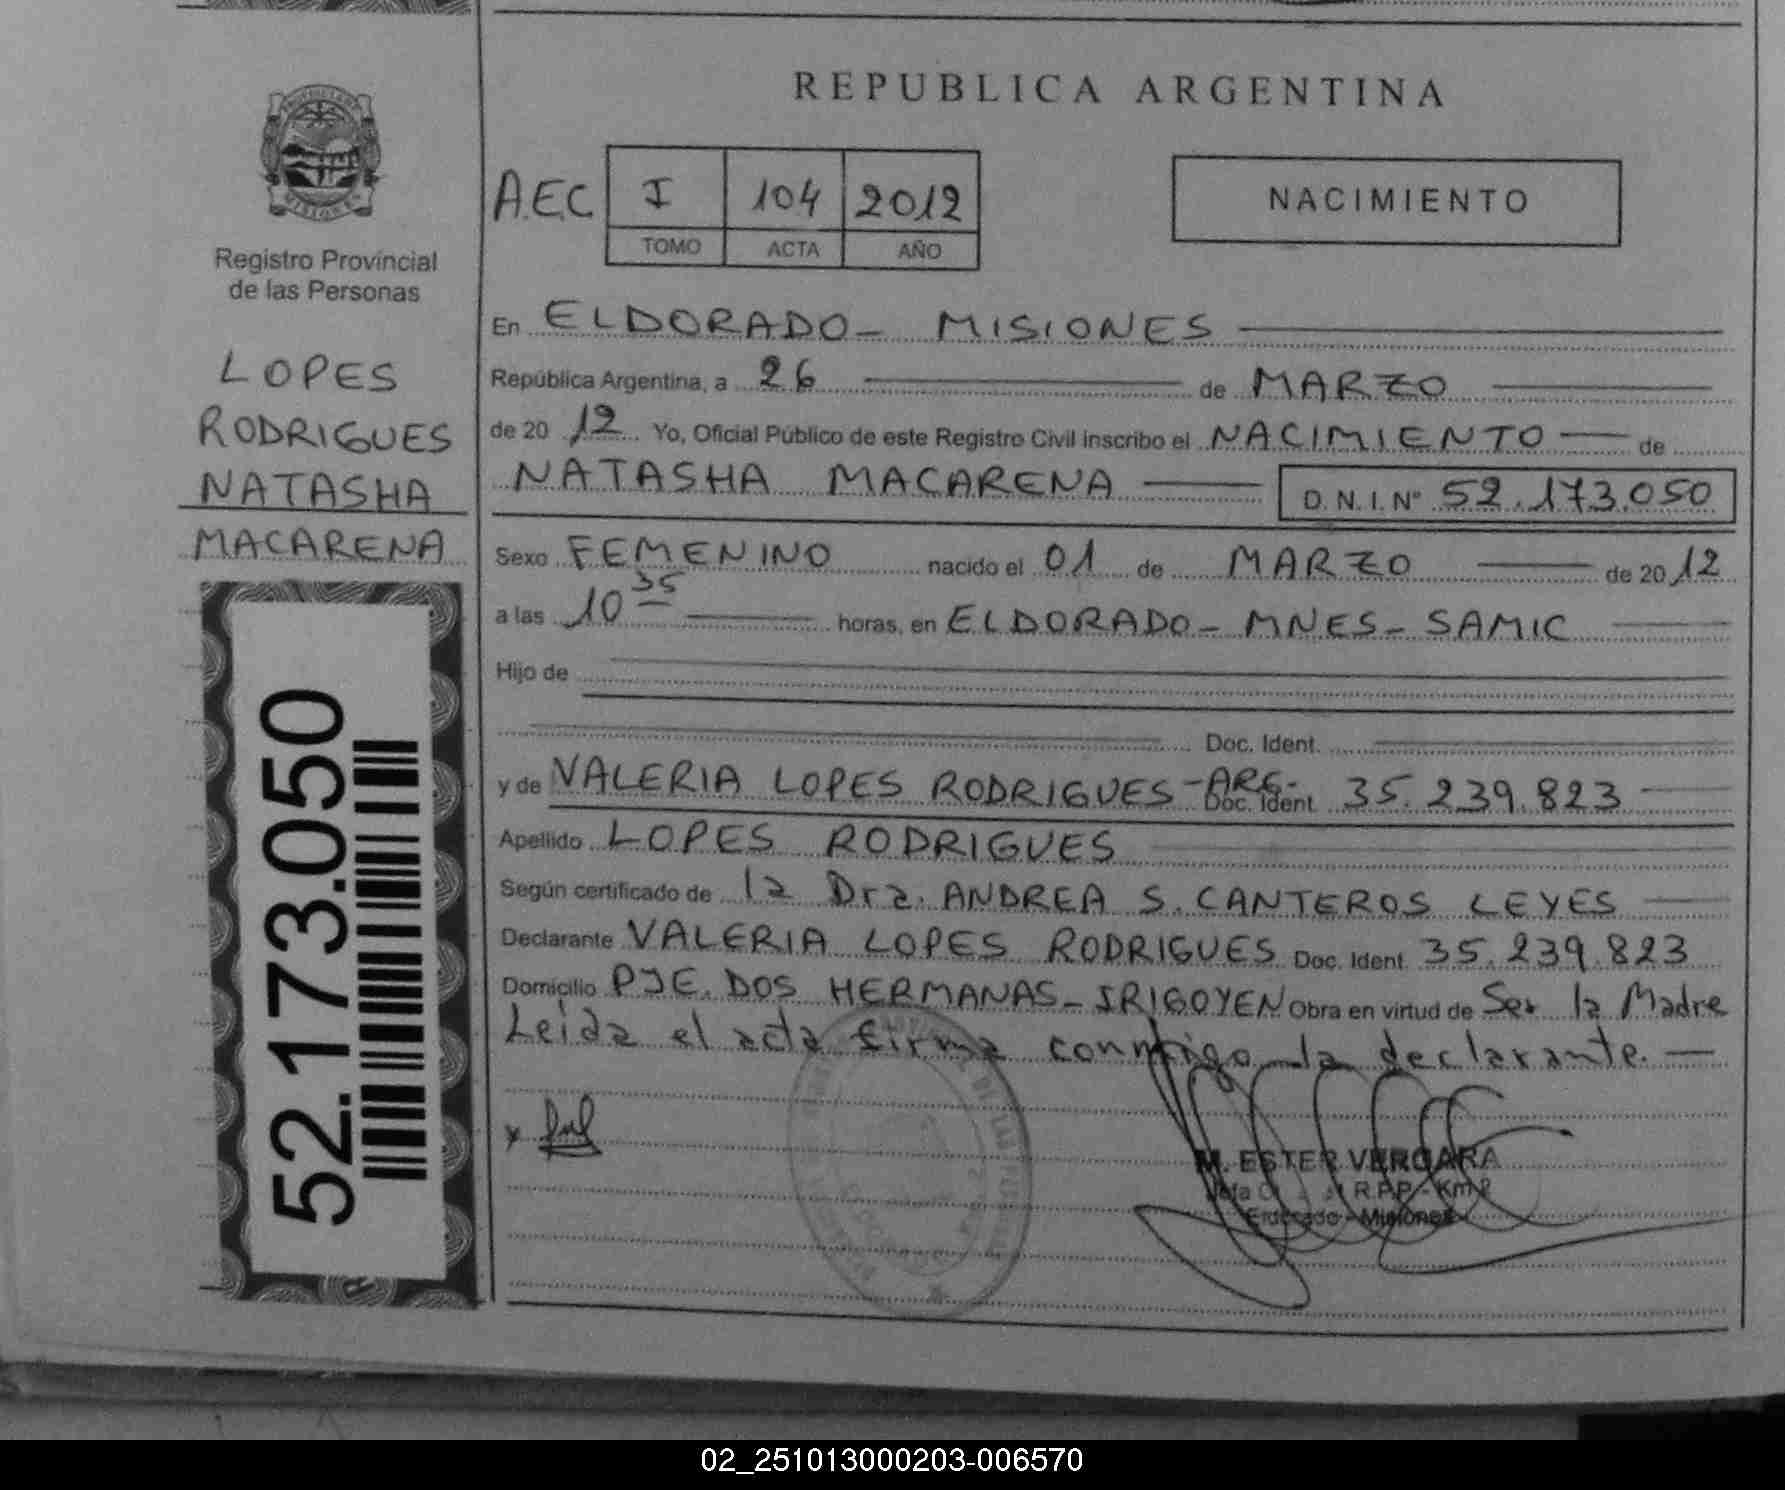 REPUBLICA ARGENTINA
PROVINCIA DE
MISIONES
Registro Provincial
de las Personas
LOPES
RODRIGUES
NATASHA
MACARENA
52.173.050
A.E.C I 104 2012
TOMO ACTA AÑO
NACIMIENTO
En ELDORADO - MISIONES
República Argentina, a 26 de MARZO
de 20 12 Yo, Oficial Público de este Registro Civil inscribo el NACIMIENTO de
NATASHA MACARENA D.N.I.Nº 52.173.050
Sexo FEMENINO nacido el 01 de MARZO de 20 12
a las 10 35 horas, en ELDORADO - MNES - SAMIC
Hijo de
Doc. Ident.
y de VALERIA LOPES RODRIGUES - ARG - Doc. Ident. 35.239.823
Apellido LOPES RODRIGUES
Según certificado de la Dra. ANDREA S. CANTEROS LEYES
Declarante VALERIA LOPES RODRIGUES Doc. Ident. 35.239.823
Domicilio PJE. DOS HERMANAS - IRIGOYEN Obra en virtud de Ser la Madre
Leida el acta firma conmigo la declarante. -
x
M. ESTER VERGARA
Jefa R.P.P. - Km 2
Eldorado - Misiones
02_251013000203-006570